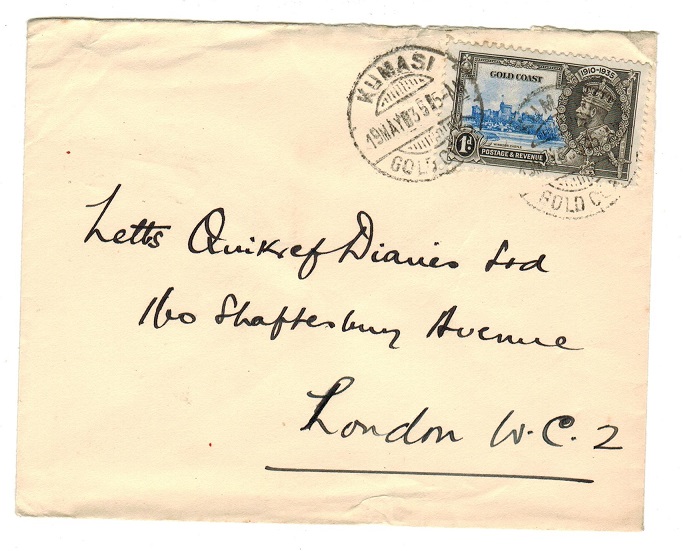 KUMASI
19MAY35
GOLD CO
GOLD COAST
1910-1935
WINDSOR CASTLE
1d
POSTAGE & REVENUE
GOLD CO
Letts Quikref Diaries Ltd
160 Shaftesbury Avenue
London W.C.2